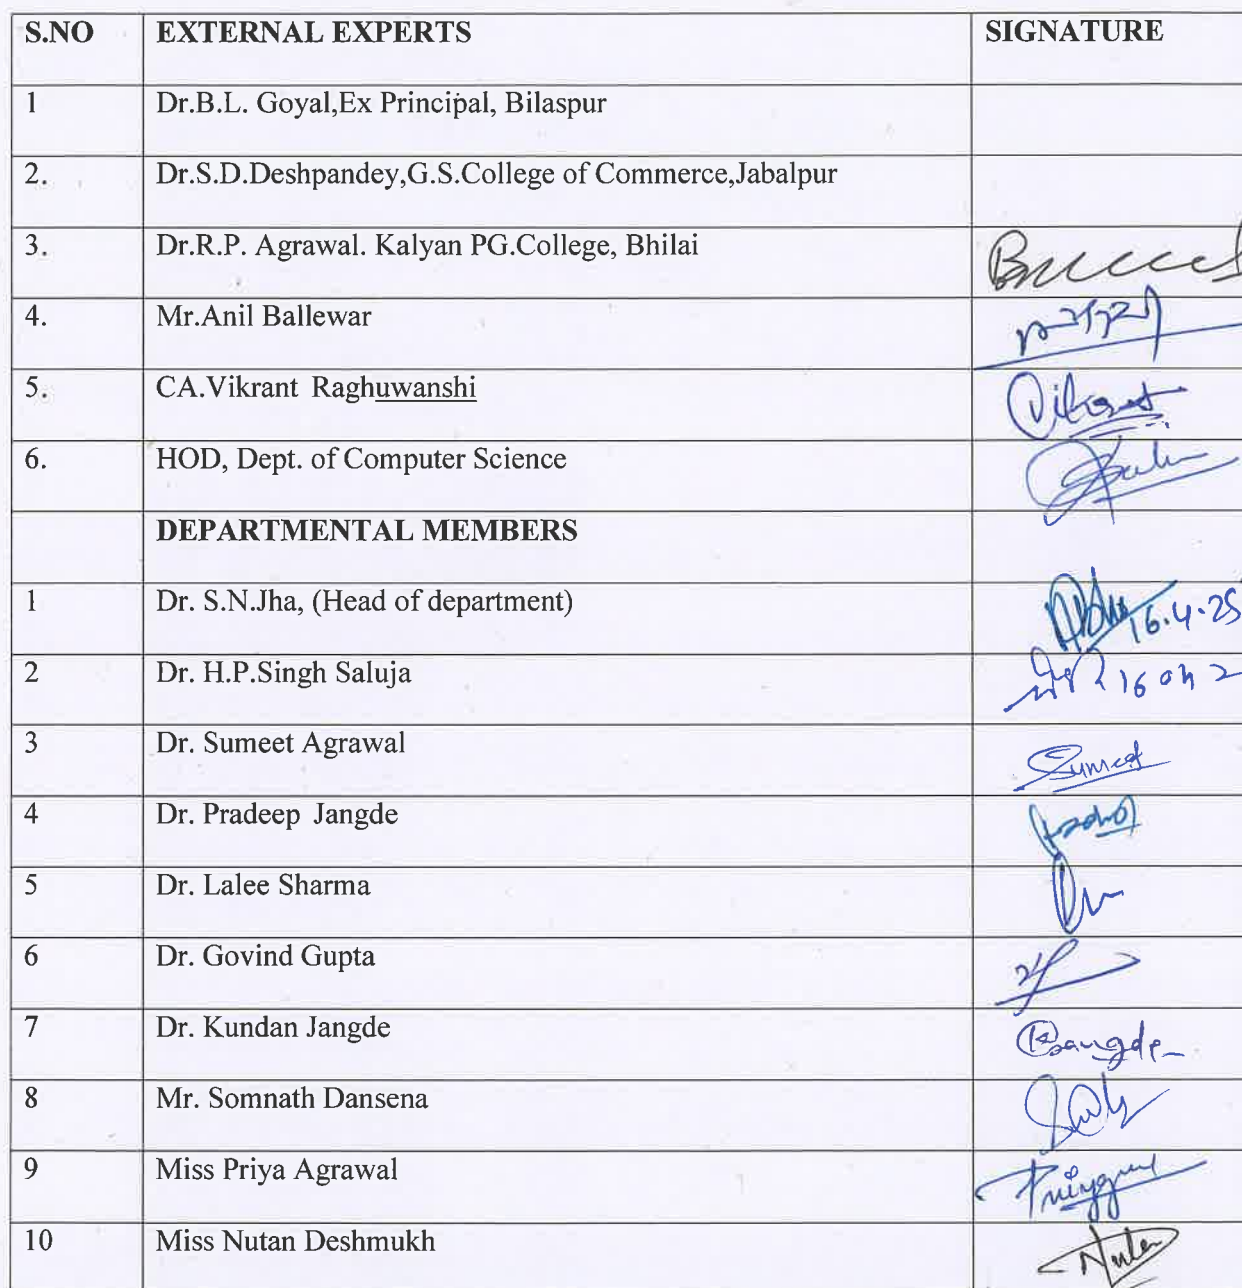 S.NO EXTERNAL EXPERTS SIGNATURE
1 Dr.B.L. Goyal,Ex Principal, Bilaspur
2. Dr.S.D.Deshpandey,G.S.College of Commerce,Jabalpur
3. Dr.R.P. Agrawal. Kalyan PG.College, Bhilai
4. Mr.Anil Ballewar
5. CA.Vikrant Raghuwanshi Vikrant
6. HOD, Dept. of Computer Science
DEPARTMENTAL MEMBERS
1 Dr. S.N.Jha, (Head of department) 16.4.25
2 Dr. H.P.Singh Saluja 16 04 2
3 Dr. Sumeet Agrawal Sumeet
4 Dr. Pradeep Jangde
5 Dr. Lalee Sharma
6 Dr. Govind Gupta
7 Dr. Kundan Jangde Kjangde
8 Mr. Somnath Dansena
9 Miss Priya Agrawal
10 Miss Nutan Deshmukh Nutan